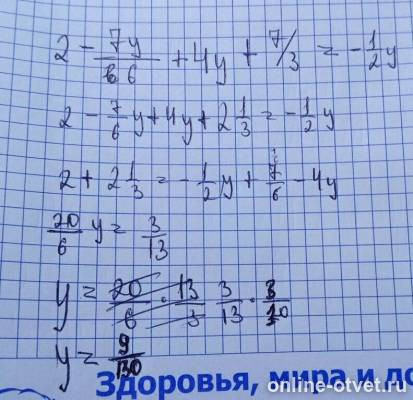 2 - 7y/6 + 4y + 7/3 = -1/2 y
2 - 7/6 y + 4y + 2 1/3 = -1/2 y
2 + 2 1/3 = -1/2 y + 7/6 - 4y
20/6 y = 3/13
y = 20/6 · 13/3 3/13 · 3/10
y = 9/130
Здоровья, мира и до
online-otvet.ru